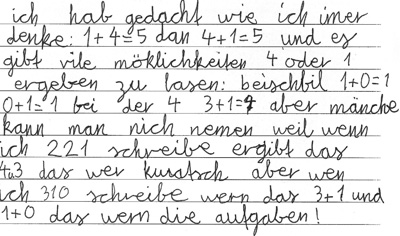 ich hab gedacht wie ich imer
denke: 1+4=5 dan 4+1=5 und es
gibt vile möklichkeiten 4 oder 1
ergeben zu lasen: beischbil 1+0=1
0+1=1 bei der 4 3+1= aber mänche
kann man nich nemen weil wenn
ich 221 schreibe ergibt das
4u3 das wer kwatsch aber wen
ich 310 schreibe wern das 3+1 und
1+0 das wern die aufgaben!